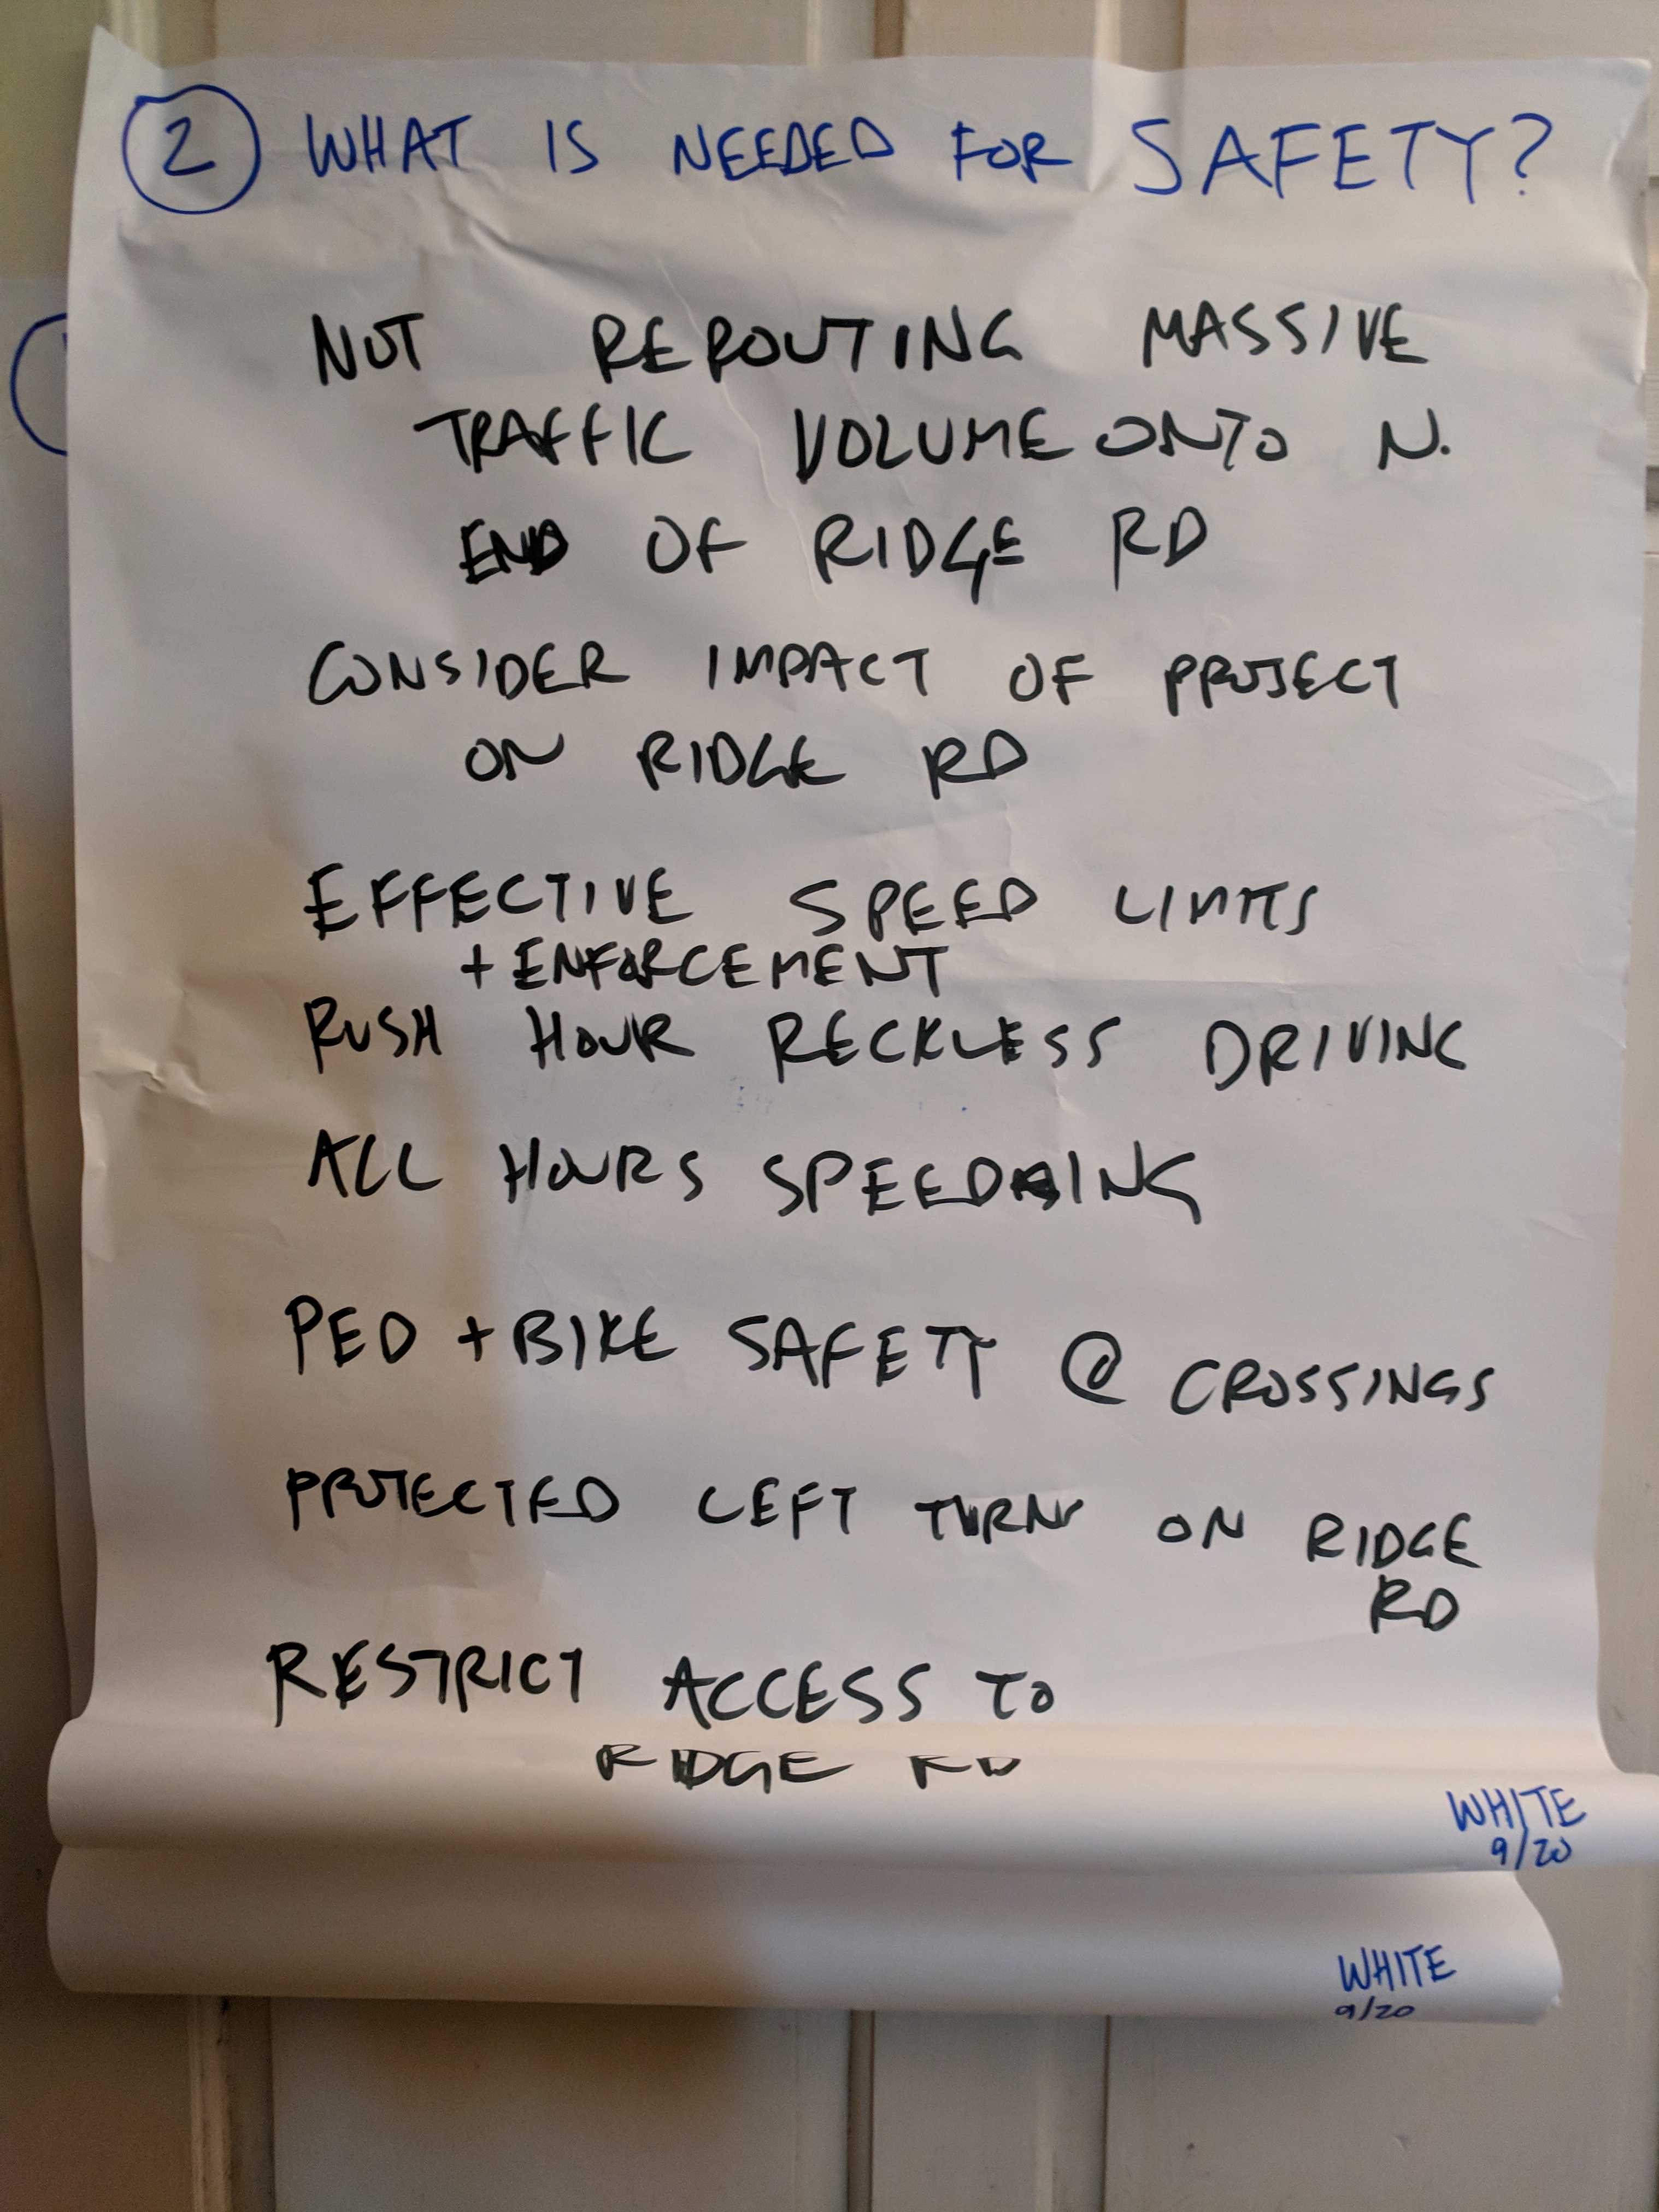 2 WHAT IS NEEDED FOR SAFETY?
NOT REROUTING MASSIVE
TRAFFIC VOLUME ONTO N.
END OF RIDGE RD
CONSIDER IMPACT OF PROJECT
ON RIDGE RD
EFFECTIVE SPEED LIMITS
+ ENFORCEMENT
RUSH HOUR RECKLESS DRIVING
ALL HOURS SPEEDING
PED + BIKE SAFETY @ CROSSINGS
PROTECTED LEFT TURNS ON RIDGE
RD
RESTRICT ACCESS TO
RIDGE RD
WHITE
9/20
WHITE
9/20